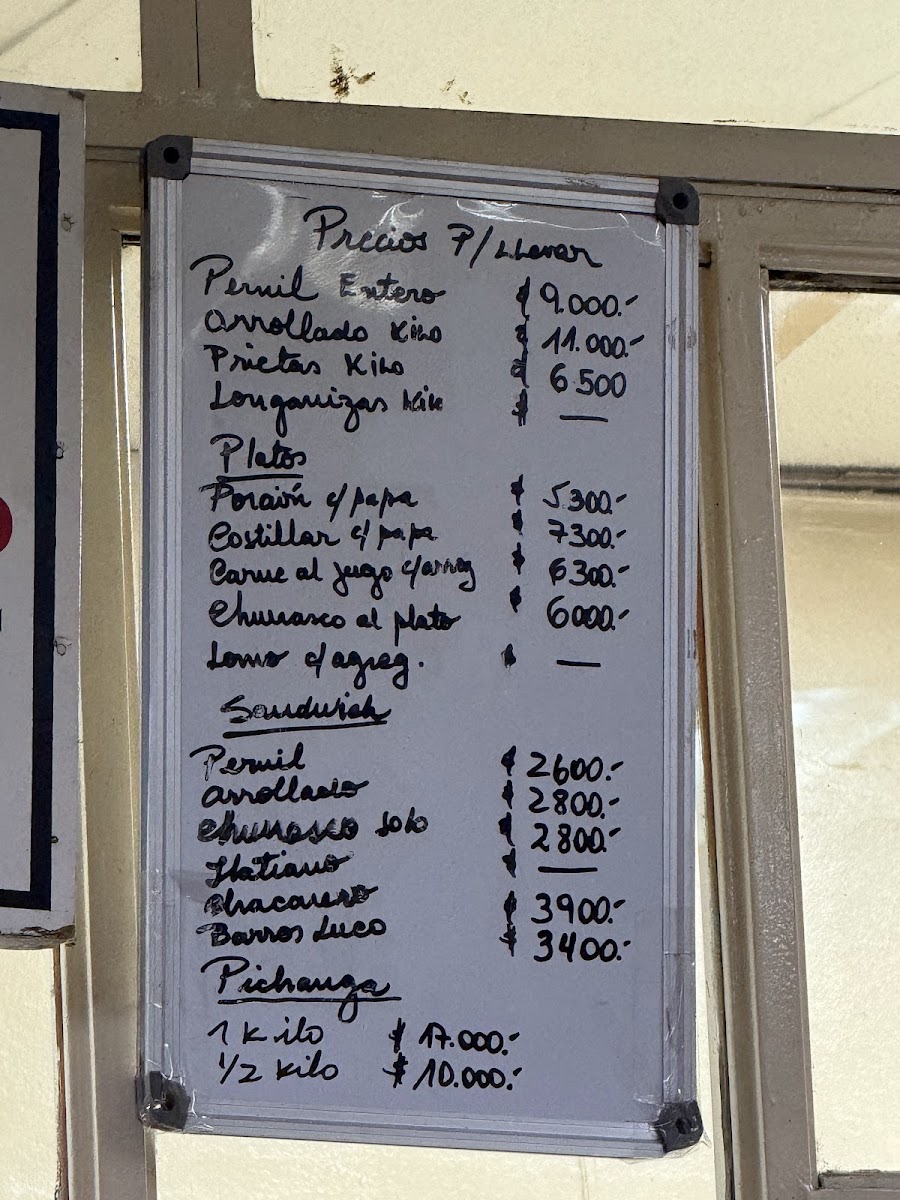 Precios P/Llevar
Pernil Entero $ 9.000.-
Arrollado Kilo $ 11.000.-
Prietas Kilo $ 6.500
Longanizas Kilo $ —
Platos
Porción c/papa $ 5.300.-
Costillar c/papa $ 7300.-
Carne al jugo c/arreg $ 6300.-
Churrasco al plato $ 6000.-
Lomo c/agreg. $ —
Sandwich
Pernil $ 2600.-
Arrollado $ 2800.-
Churrasco solo $ 2800.-
Italiano $ —
Chacarero $ 3900.-
Barros Luco $ 3400.-
Pichanga
1 Kilo $ 17.000.-
1/2 Kilo $ 10.000.-